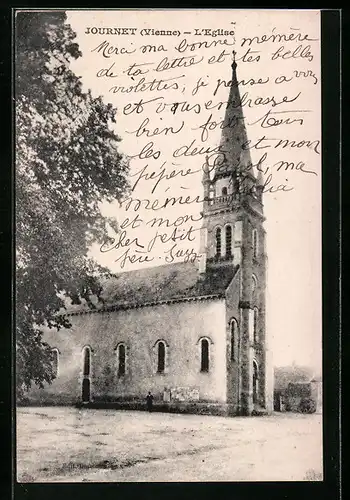 JOURNET (Vienne) - L'Eglise
Merci ma bonne mémère
de ta lettre et tes belles
violettes, je pense a vous
et vous embrasse
bien fort tous
les deux et mon
pépère ma
mémère
et mon
cher petit